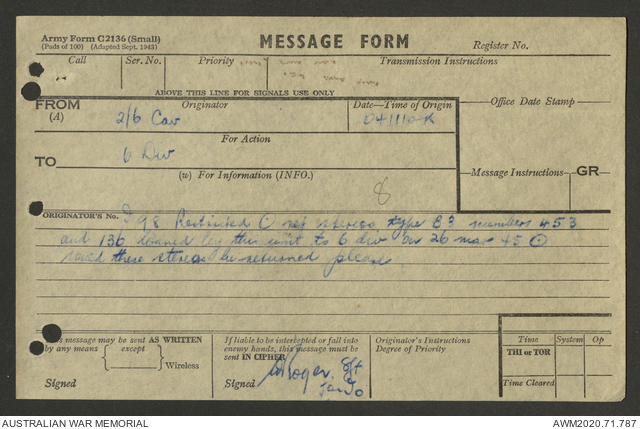 Army Form C2136 (Small)
(Pads of 100) (Adapted Sept. 1943)
MESSAGE FORM
Register No.
Call Ser. No. Priority Transmission Instructions
ABOVE THIS LINE FOR SIGNALS USE ONLY
FROM Originator Date—Time of Origin Office Date Stamp
(A) 2/6 Cav 041110K
For Action
TO 6 Div
(w) For Information (INFO.) Message Instructions GR
8
ORIGINATOR'S No. 98 Restricted ref stereos type 83 numbers 453
and 136 loaned by this unit to 6 div on 26 mar 45
these stereos be returned please
This message may be sent AS WRITTEN
by any means except
Wireless
Signed
If liable to be intercepted or fall into
enemy hands, this message must be
sent IN CIPHER
Signed
Originator's Instructions
Degree of Priority
Time System Op
THI or TOR
Time Cleared
AUSTRALIAN WAR MEMORIAL AWM2020.71.787